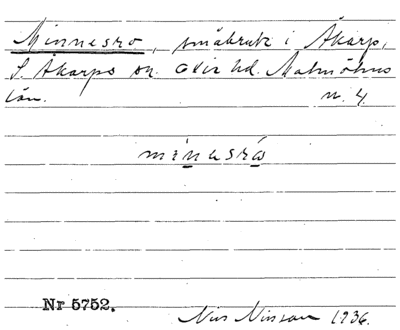 Minnesro, småbruk i Åkarp,
S. Åkarps sn. Oxie hd. Malmöhus
län. n. 4.
minasrɷ
Nr 5752.
Nils Nilsson 1936.